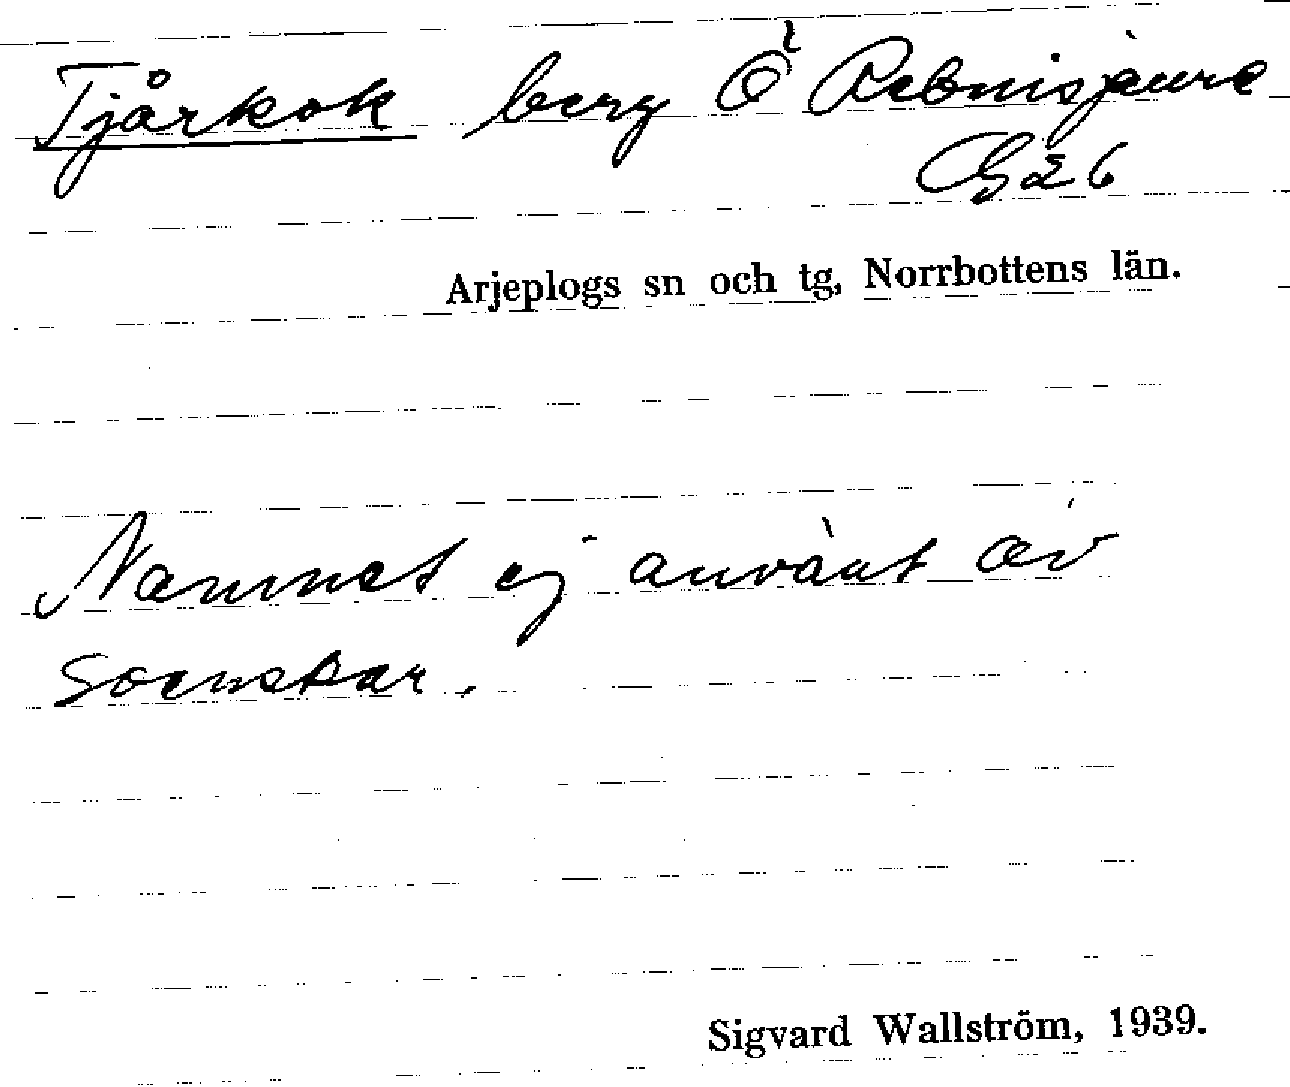 Tjårkok berg Ö Rebnisjaure
G 26
Arjeplogs sn och tg, Norrbottens län.
Namnet ej använt av
svenskar.
Sigvard Wallström, 1939.